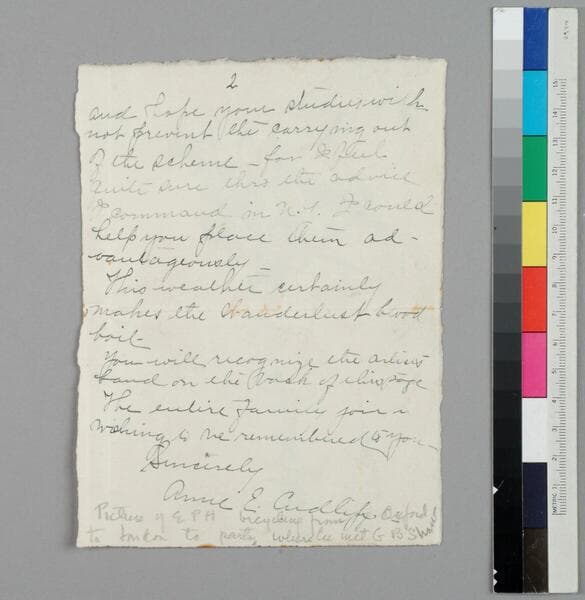 2
and hope your studies will
not prevent the carrying out
of the scheme – for I feel
quite sure that the advice
I command in N.Y. would
help you place them ad-
vantageously –
This weather certainly
makes the Wanderlust blood
boil
You will recognize the artist's
hand on the back of this page
The entire family join in
wishing to be remembered to you –
Sincerely
Annie E.
Picture of E P H bicycling from Oxford
to London to party where he met G B Shaw